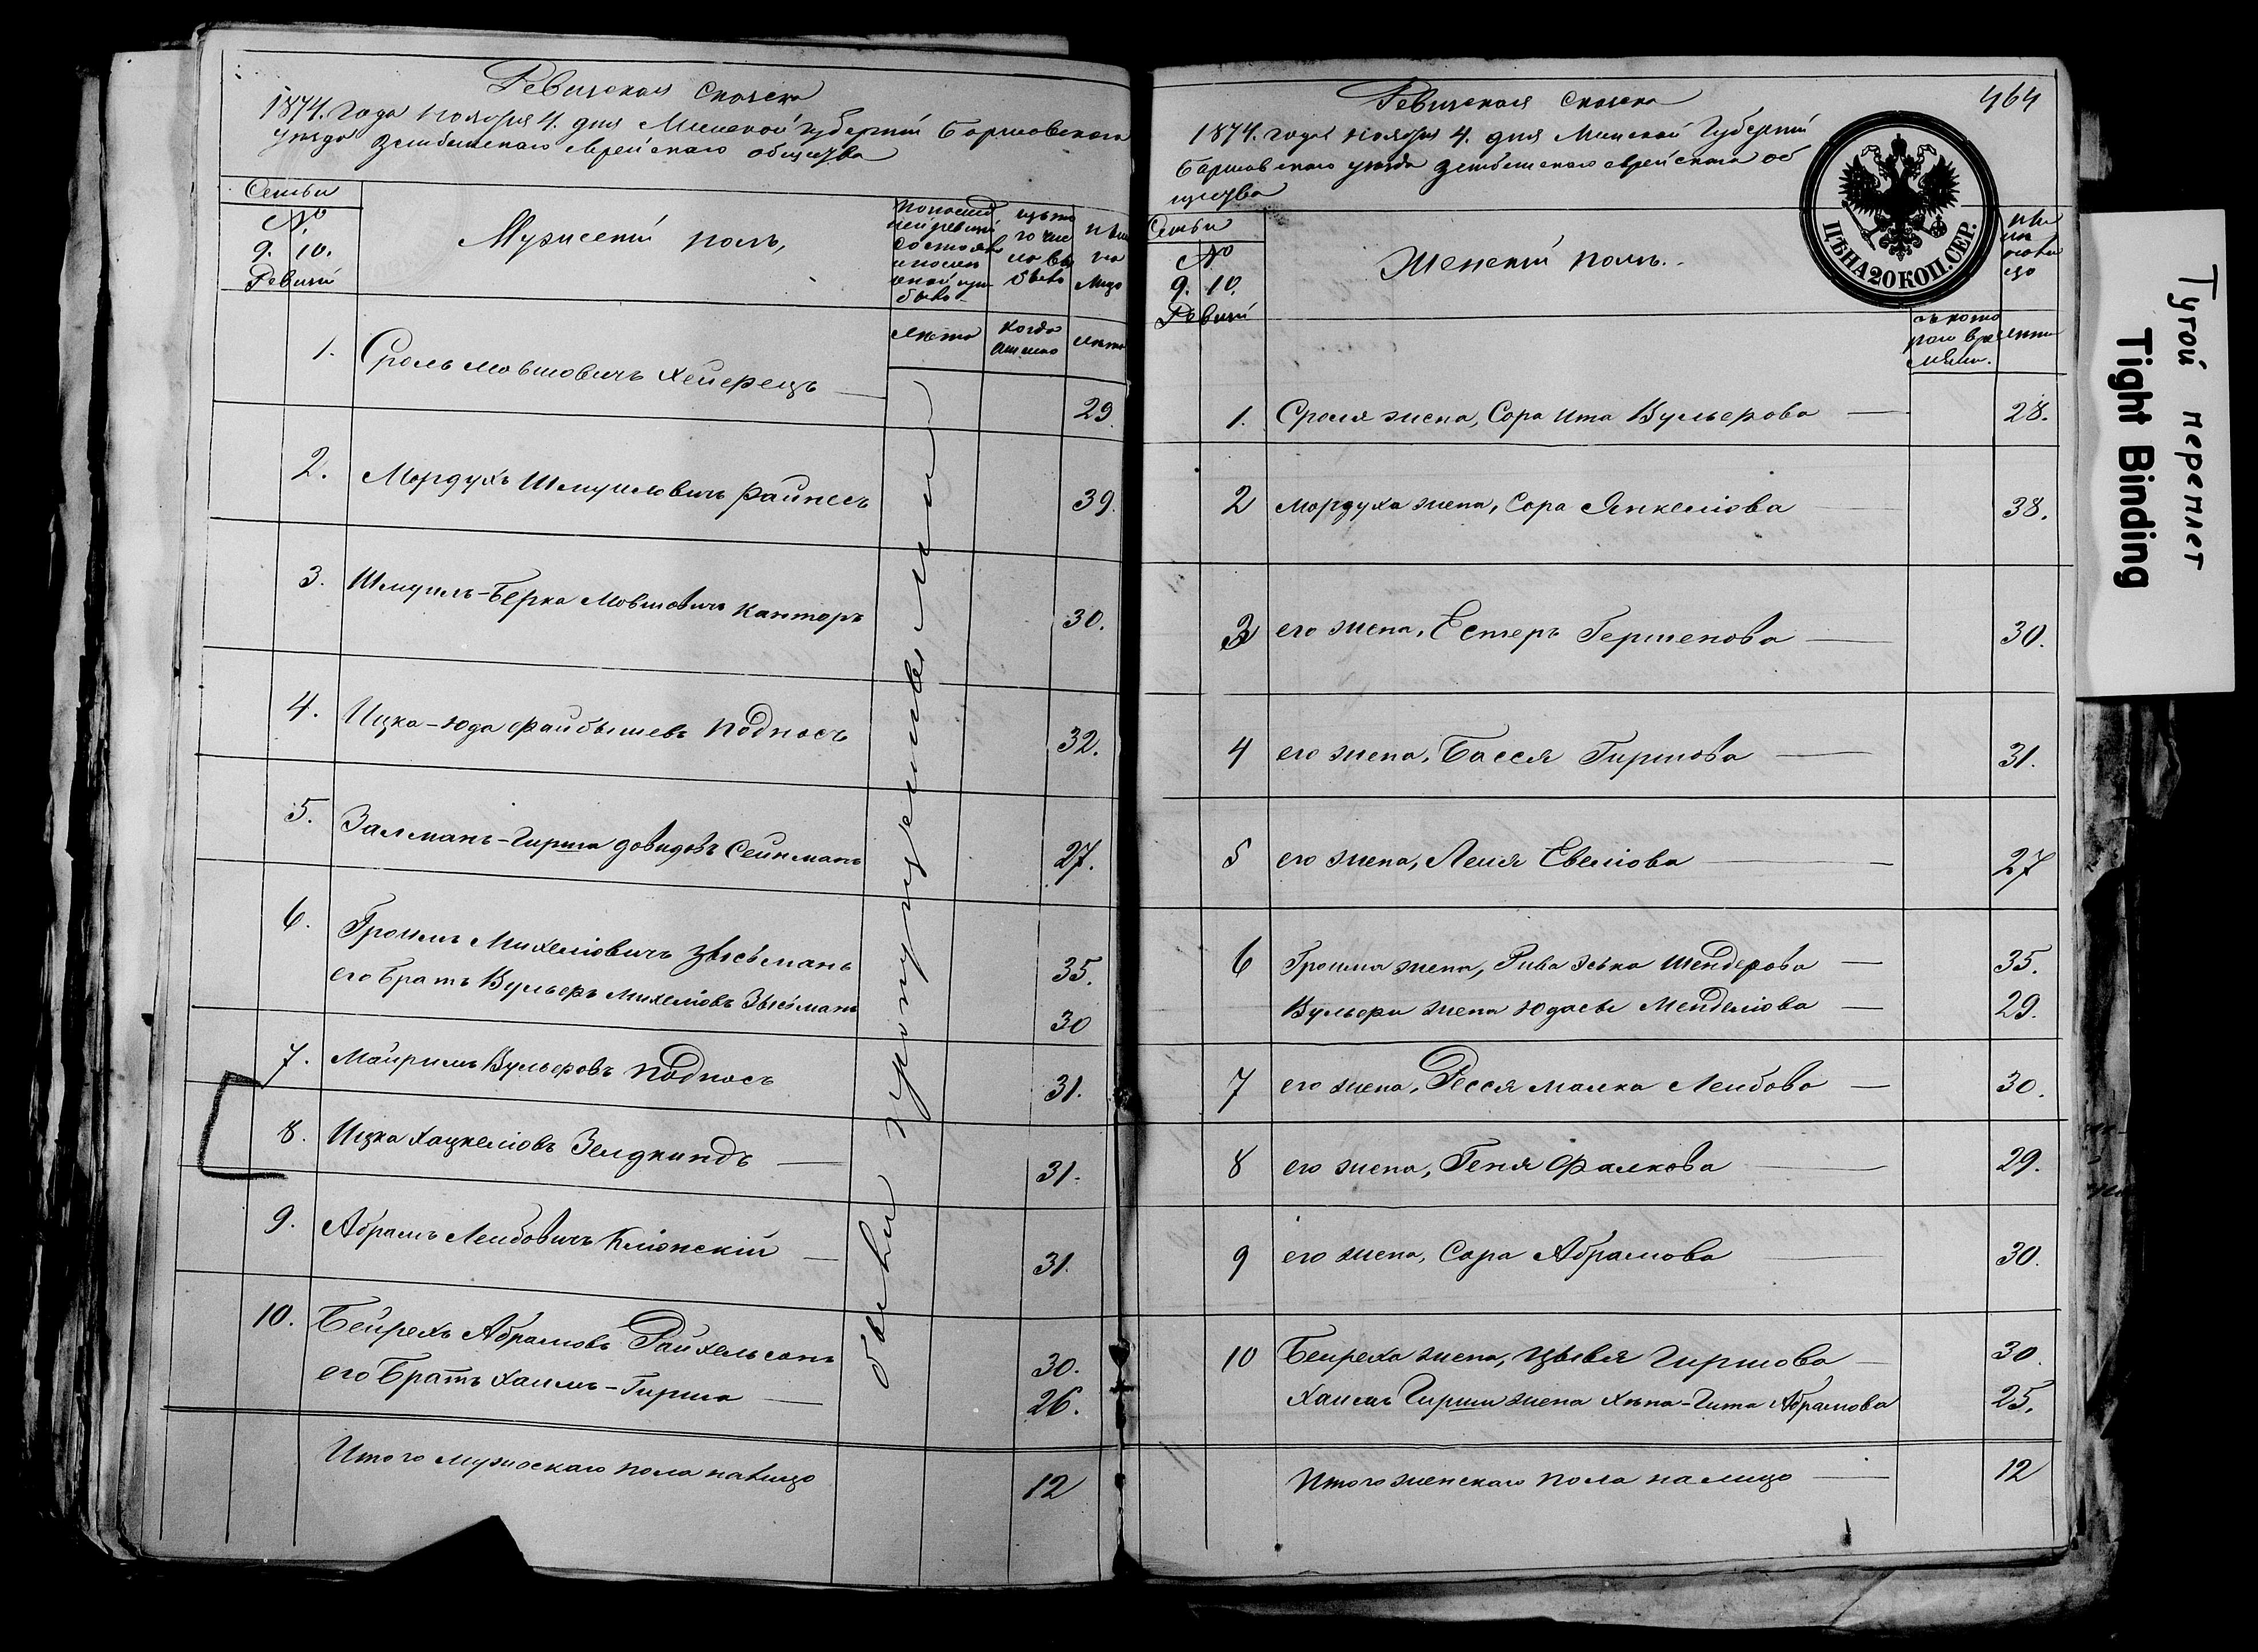 Ревизская Сказка
1874. года ноября 4. дня Минской губернии Борисовского
уезда Зембинского еврейского общества
Семьи
№
9. 10.
Ревизiи
Мужескiй полъ,
По послед
ней ревизiи
состояло
и после
оной при
было
изъ то
го чис
ла вы
было
ныне
на
лицо
лета
когда
именно
лета
1. Сроль Мовшовичъ Хейфецъ 29.
2. Мордухъ Шмуиловичъ Райнесъ 39.
3. Шмуилъ-Берка Мовшовичъ Канторъ 30.
4. Ицка-Юда Файбышевъ Подносъ 32.
5. Залманъ-Гирша Довидовъ Сейнманъ 27.
6. Гроимъ Михелiовичъ Зысьманъ 35.
его братъ Вульфъ Михелiовъ Зысьманъ 30
7. Маиримъ Вульфовъ Подносъ 31.
8. Ицка Хацкелiовъ Зелдкиндъ 31.
9. Абрамъ Лейбовичъ Клiонскiй 31.
10. Бейрехъ Абрамовъ Райхельсонъ 30.
его братъ Хаимъ-Гирша 26.
Итого мужескаго пола налицо 12
были пропущенными
464
Ревизская Сказка
1874. года ноября 4. дня Минской Губернiи
Борисовского уезда Зембинского еврейского об
щества
ЦѢНА 20 КОП. СЕР.
Семьи
№
9. 10.
Ревизiи
Женскiй полъ.
съ кото
рого вре
мени.
лета
1. Сроля жена, Сора Ита Вульфова 28.
2 Мордуха жена, Сора Янкелiова 38.
3 его жена, Естеръ Гершенова 30.
4 его жена, Бася Гиршова 31.
5 его жена, Лея Евелiова 27
6 Гроима жена, Рива Эська Шендерова 35.
Вульфа жена Юдасы Менделiова 29.
7 его жена, Десся Малка Лейбова 30.
8 его жена, Геня Фалкова 29.
9 его жена, Сора Абрамова 30.
10 Бейреха жена, Цывья Гиршова 30.
Хаимъ Гирши жена Хъна-Гита Абрамова 25.
Итого женскаго пола налицо 12
Тугой переплет
Tight Binding